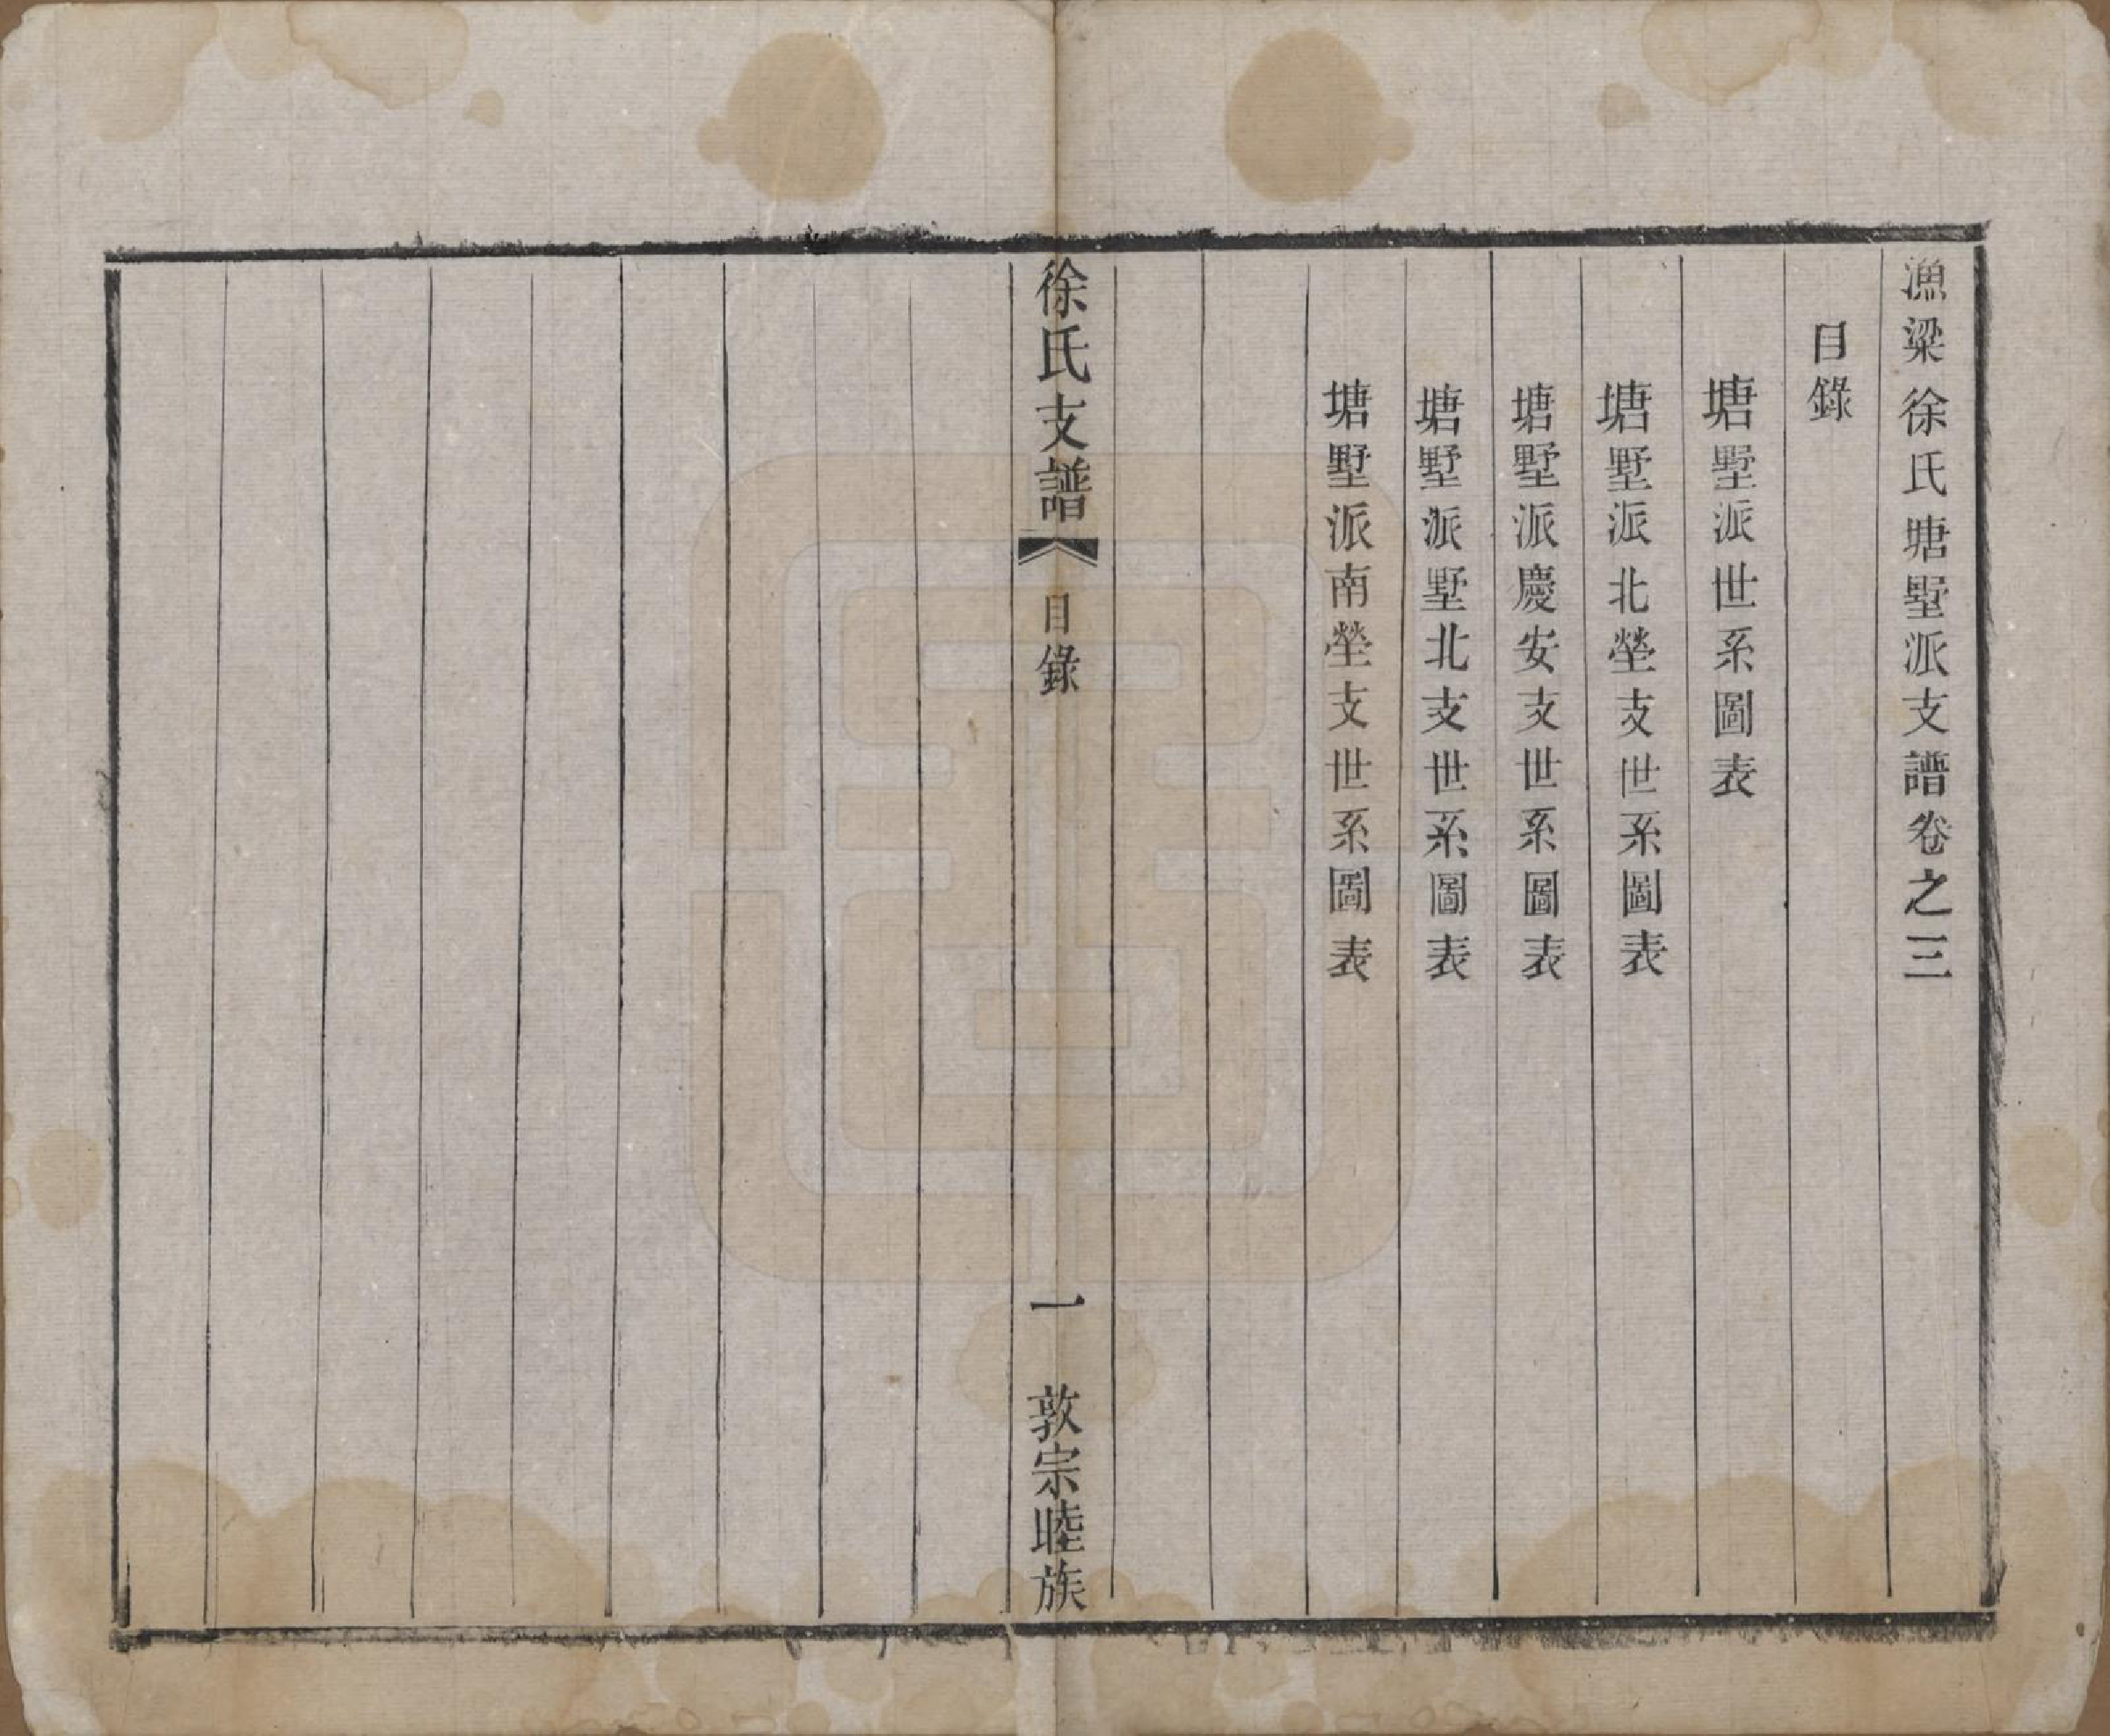 漁梁徐氏塘墅派支譜卷之三
目錄
塘墅派世系圖表
塘墅派北塋支世系圖表
塘墅派慶安支世系圖表
塘墅派墅北支世系圖表
塘墅派南塋支世系圖表
徐氏支譜
目錄
一
敦宗睦族